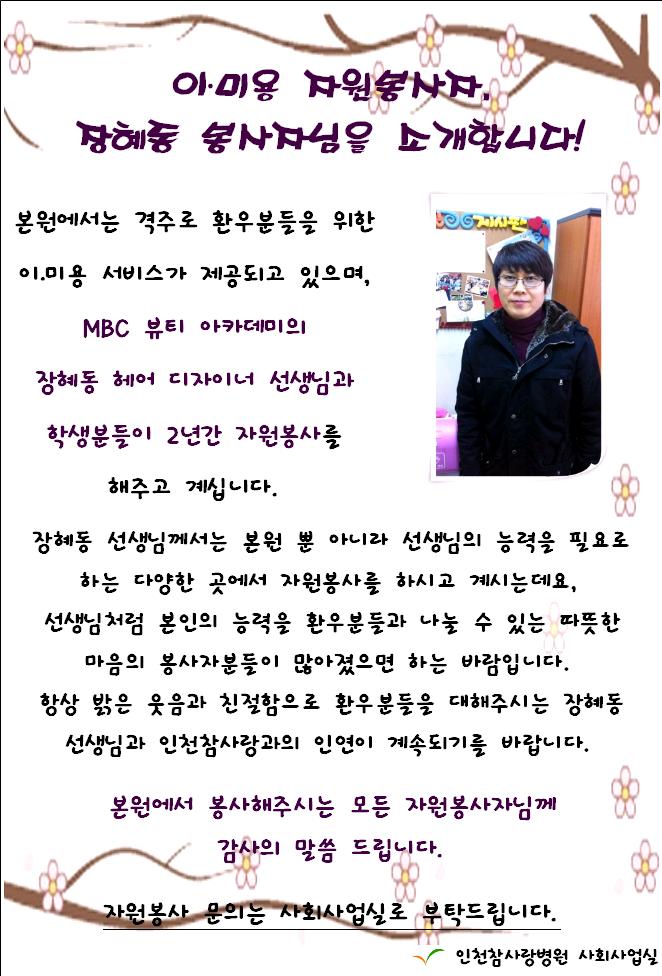 이·미용 자원봉사자,
장혜동 봉사자님을 소개합니다!
본원에서는 격주로 환우분들을 위한
이.미용 서비스가 제공되고 있으며,
MBC 뷰티 아카데미의
장혜동 헤어 디자이너 선생님과
학생분들이 2년간 자원봉사를
해주고 계십니다.
장혜동 선생님께서는 본원 뿐 아니라 선생님의 능력을 필요로
하는 다양한 곳에서 자원봉사를 하시고 계시는데요,
선생님처럼 본인의 능력을 환우분들과 나눌 수 있는 따뜻한
마음의 봉사자분들이 많아졌으면 하는 바람입니다.
항상 밝은 웃음과 친절함으로 환우분들을 대해주시는 장혜동
선생님과 인천참사랑과의 인연이 계속되기를 바랍니다.
본원에서 봉사해주시는 모든 자원봉사자님께
감사의 말씀 드립니다.
자원봉사 문의는 사회사업실로 부탁드립니다.
인천참사랑병원 사회사업실